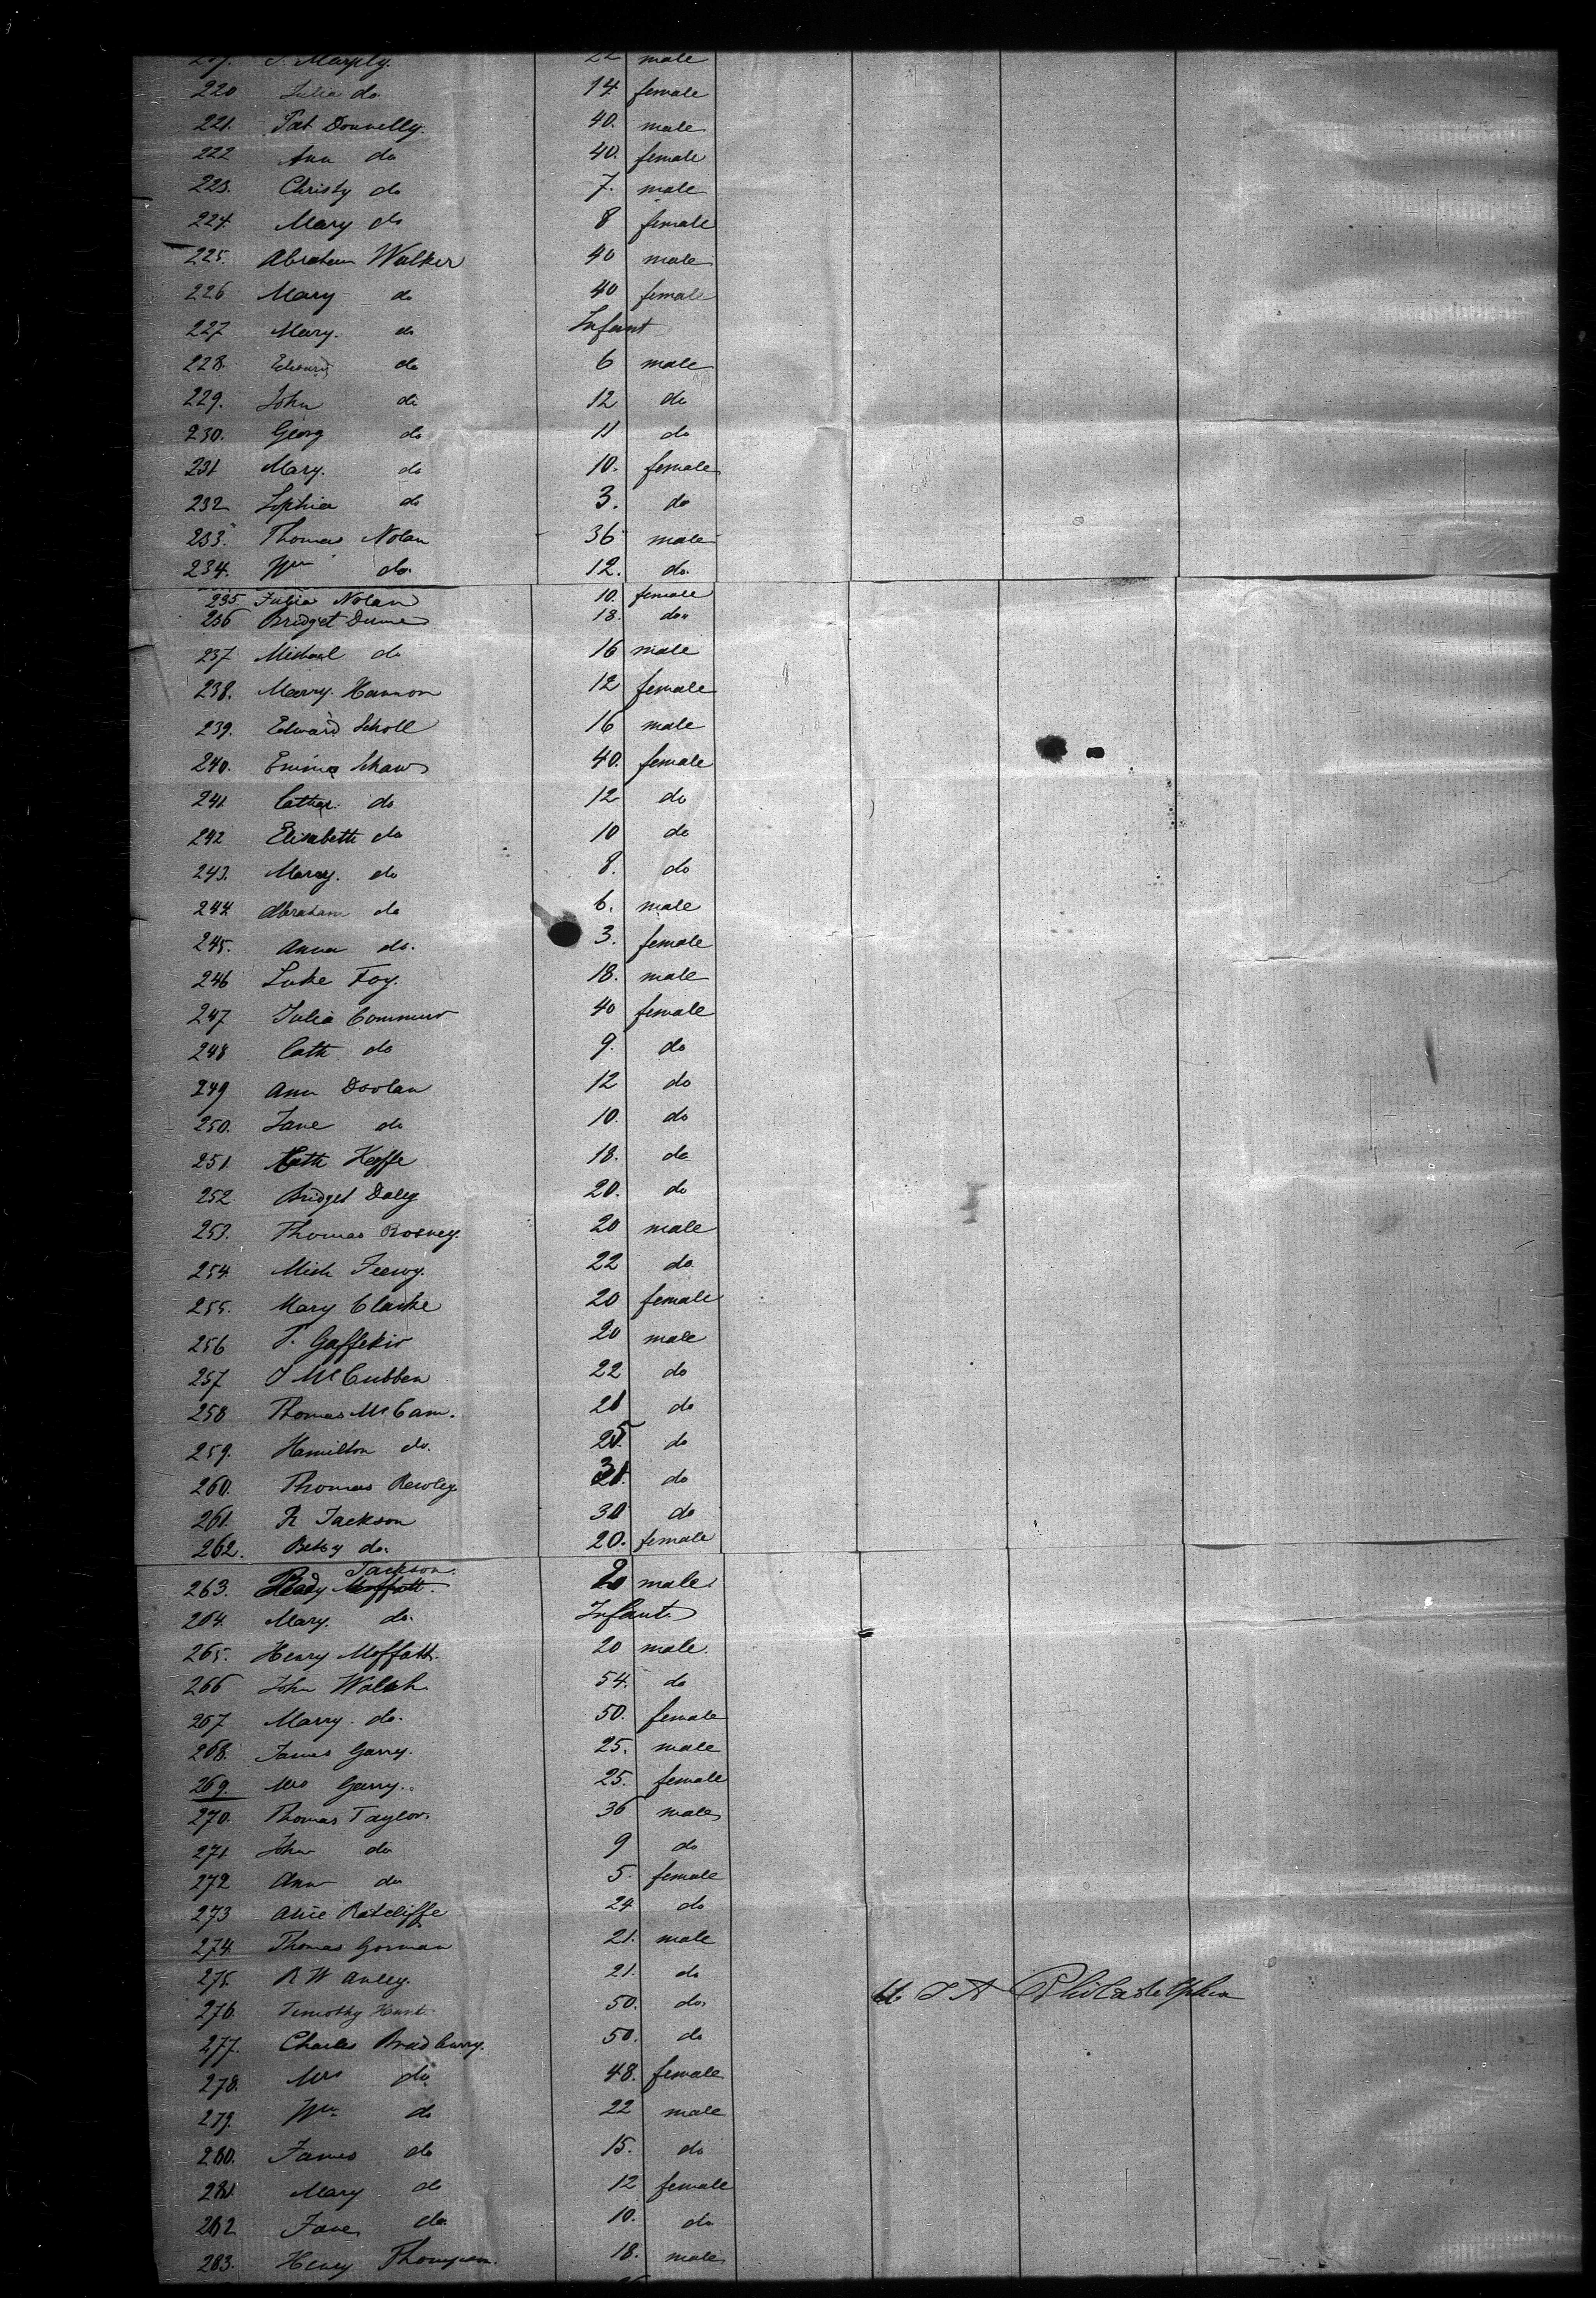 J. Murphy. 22 male
220 Julia do 14 female
221. Pat Donnelly. 40. male
222 Ann do 40. female
223. Christy do 7. male
224. Mary do 8 female
225. Abraham Walker 40 male
226 Mary do 40 female
227 Mary. do Infant
228. Edward do 6 male
229. John do 12 do
230. Georg do 11 do
231 Mary. do 10. female
232 Sophia do 3. do
233. Thomas Nolan 36 male
234. Wm do. 12. do.
235 Julia Nolan 10. female
236 Bridget Dunne 18. do
237 Michael do 16 male
238. Marry. Hannon 12 female
239. Edward Scholl 16 male
240. Emma Schaw 40. female
241. Cathar. do 12 do
242 Elisabeth do 10 do
243. Marry. do 8. do
244 Abraham do 6. male
245. Anna do. 3. female
246 Luke Foy. 18. male
247 Julia 40 female
248 Cath do 9. do
249 Ann Doolan 12 do
250. Jane do 10. do
251. Cath Keffe 18. do
252 Bridget Daley 20. do
253. Thomas Rosney. 20 male
254. Mich 22 do
255. Mary Clarke 20 female
256 T. Gaffekin 20 male
257 J McCubben 22 do
258 Thomas McCam. 21 do
259. Hamilton do. 25. do
260. Thomas Rewley 31. do
261. R Jackson 30 do
262. Betsy do. 20. female
Jackson.
263. Moffatt. 2 male.
264. Mary. do. Infant.
265. Henry Moffatt. 20 male.
266 John Walsh. 54. do
267 Marry. do. 50. female
268. James Garry. 25. male
269. Mrs Garry. 25. female
270. Thomas Taylor. 36 male
271. John do 9 do
272 Ann do 5. female
273 Alice Ratcliffe 24 do
274. Thomas Gorman 21. male
275. R W Anley. 21. do
276. Timothy Hunt. 50. do. U S A Philadelphia
277. Charles Bradburry. 50. do
278. Mrs do. 48. female
279. Wm do 22 male
280. James do 15. do
281. Mary do 12 female
282 Jane do. 10. do
283. Henry Thompson. 18. male